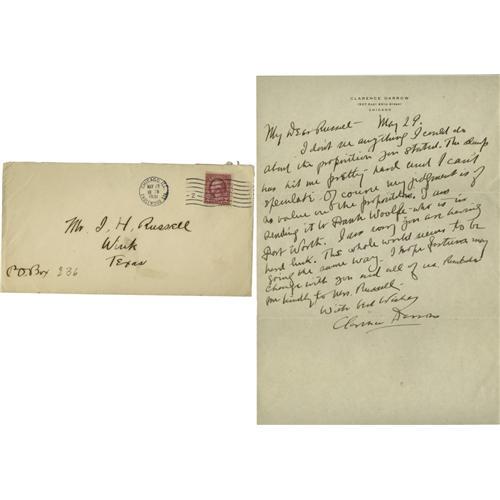 Mr. J. H. Russell
Wink
Texas
P.O. Box 236
CHICAGO, ILL.
MAY 29
CLARENCE DARROW
1537 East 60th Street
CHICAGO
May 29.
My Dear Russell—
I don't see anything I could do
about the proposition you stated. The slump
has hit me pretty hard and I can't
speculate. Of course my judgment is of
no value on the proposition. I am
sending it to Frank Woolfe who is in
Fort Worth. I am sorry you are having
hard luck. The whole world seems to be
going the same way. I hope fortune may
change with you and all of us. Remember
me kindly to Mrs. Russell.
With best wishes
Clarence Darrow